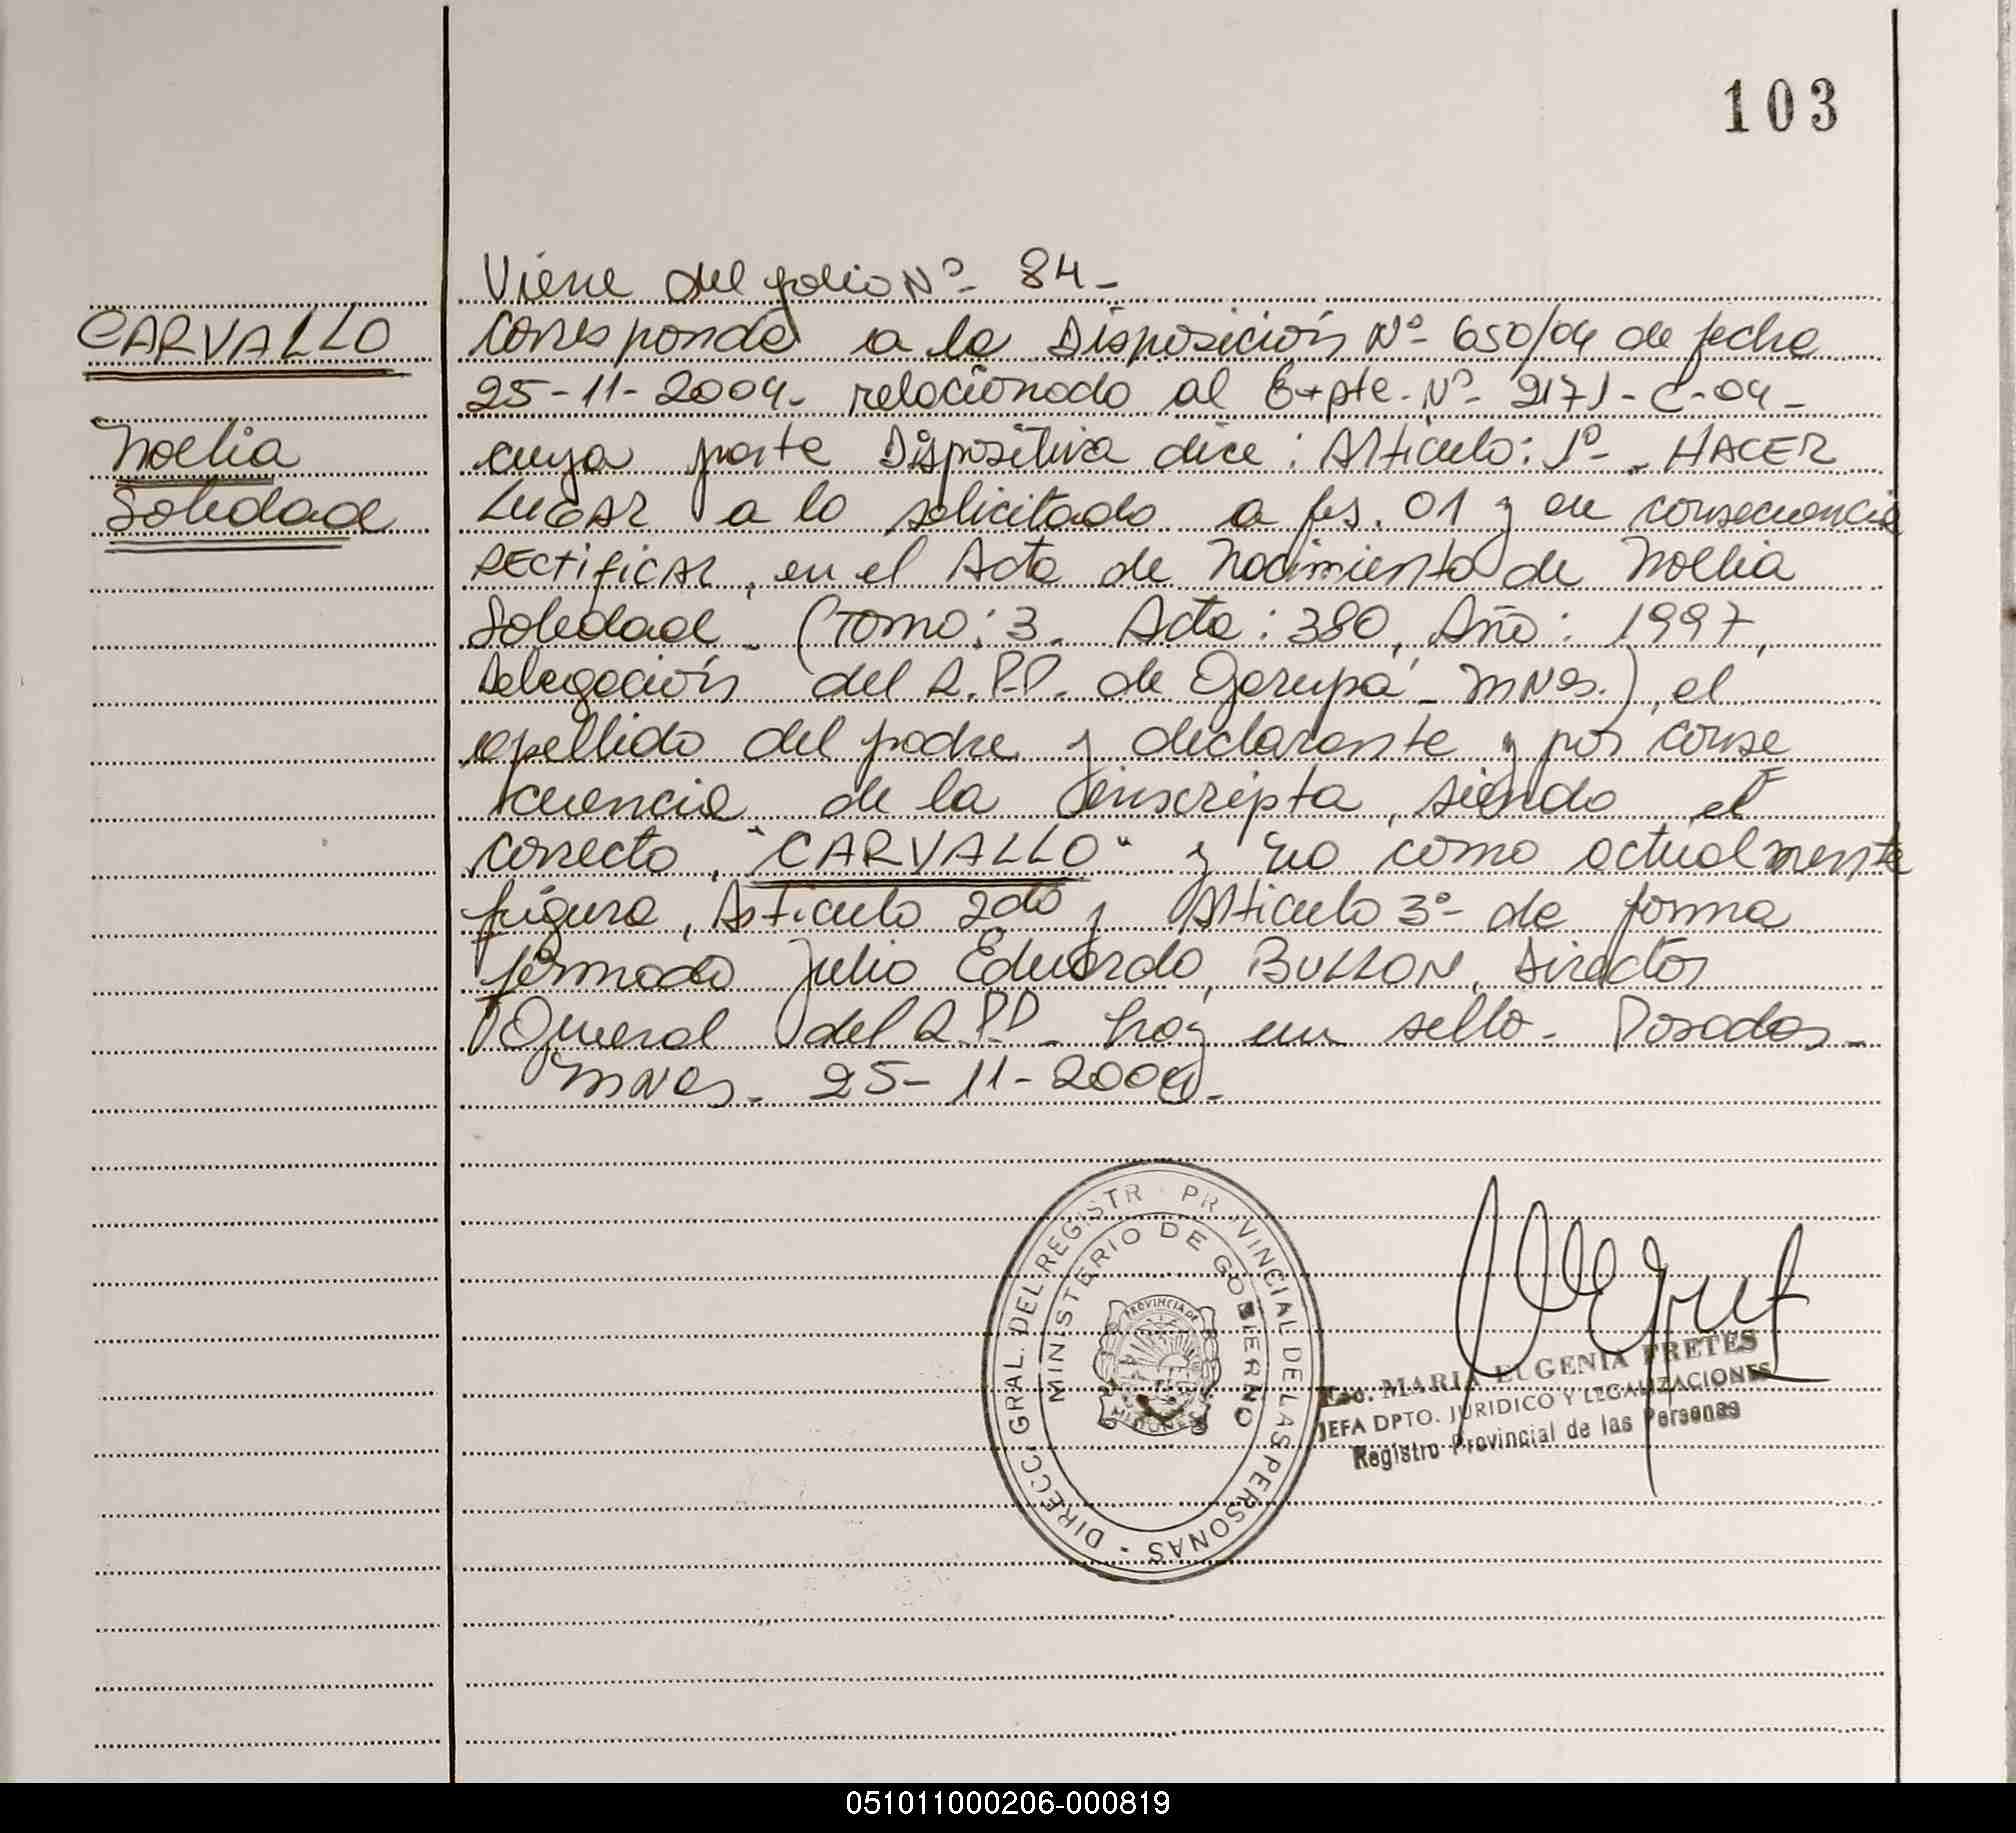 103
Viene del folio Nº 84-
CARVALLO
Corresponde a la Disposición Nº 650/04 de fecha
25-11-2004- relacionado al Expte. Nº 2171-C-04-
Noelia
cuya parte Dispositiva dice: Artículo: 1º-. HACER
Soledad
LUGAR a lo solicitado a fs. 01 y en consecuencia
RECTIFICAR, en el Acta de Nacimiento de Noelia
Soledad (Tomo: 3. Acta: 380, Año: 1997,
Delegación del R.P.P. de Garupá- Mnes.), el
apellido del padre y declarante y por conse
cuencia de la inscripta, siendo el
correcto, "CARVALLO" y no como actualmente
figura, Artículo 2do y Artículo 3º- de forma
firmado Julio Eduardo, BULLON, Director
General del R.P.P. hay un sello- Posadas-
Mnes- 25-11-2004-
DIRECC. GRAL. DEL REGISTR PR VINCIAL DE LAS PERSONAS -
MINISTERIO DE GOBIERNO
PROVINCIA DE
MISIONES
Esc. MARIA EUGENIA FRETES
JEFA DPTO. JURIDICO Y LEGALIZACIONES
Registro Provincial de las Personas
051011000206-000819